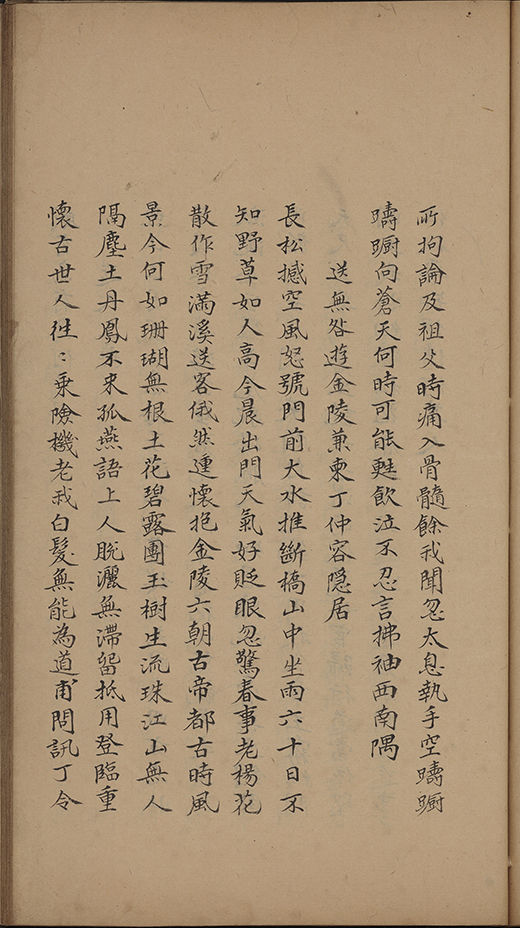 所拘論及祖父時痛入骨髓餘我聞忽太息執手空躊蹰
躊蹰向蒼天何時可能甦飲泣不忍言拂袖西南隅
送無咎遊金陵兼柬丁仲容隱居
長松撼空風怒號門前大水推斷橋山中坐雨六十日不
知野草如人高今晨出門天氣好貶眼忽驚春事老楊花
散作雪滿溪送客俄然連懷抱金陵六朝古帝都古時風
景今何如珊瑚無根土花碧露團玉樹生流珠江山無人
隔塵土丹鳳不来孤燕語上人脫灑無滯留抵用登臨重
懷古世人徃〻乗險機老我白髮無能為道甫問訊丁令